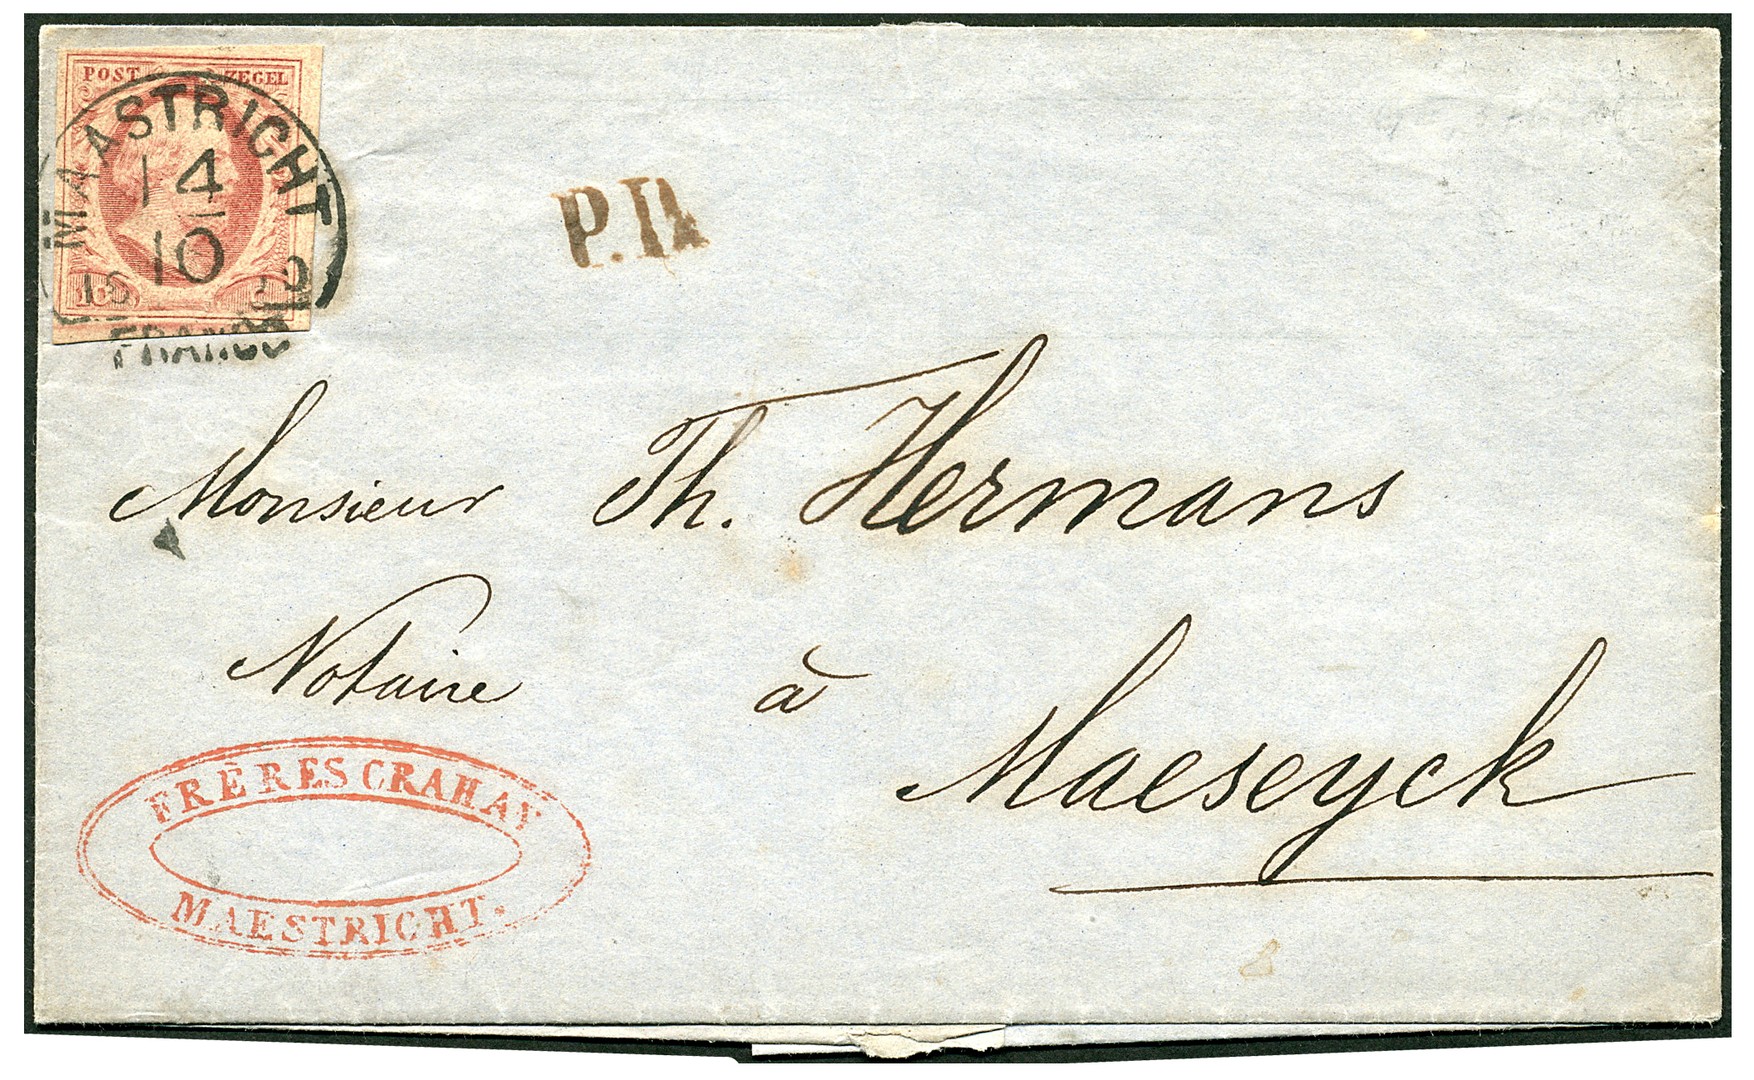 POST ZEGEL
MAASTRICHT
14
10
FRANCO
P.D.
Monsieur Th. Hermans
Notaire à
Maeseyck
FRÈRES CRAHAY
MAESTRICHT.